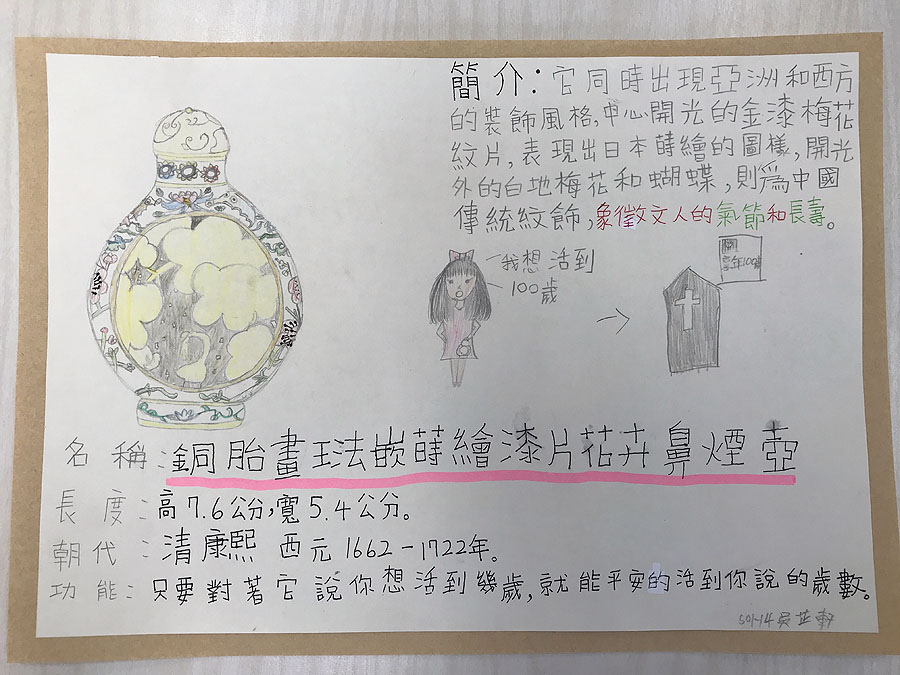 簡介：它同時出現亞洲和西方
的裝飾風格，中心開光的金漆梅花
紋片，表現出日本蒔繪的圖樣，開光
外的白地梅花和蝴蝶，則為中國
傳統紋飾，象徵文人的氣節和長壽。
我想活到
100歲
享年100歲
名稱：銅胎畫琺瑯嵌蒔繪漆片花卉鼻煙壺
長度：高7.6公分，寬5.4公分。
朝代：清康熙 西元1662－1722年。
功能：只要對著它說你想活到幾歲，就能平安的活到你說的歲數。